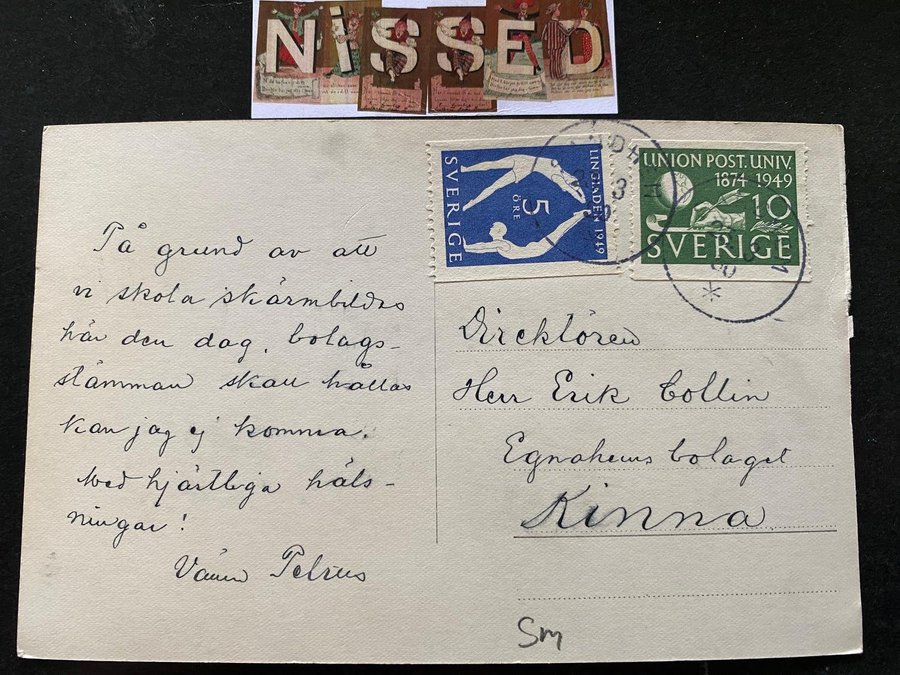 NISSED
På grund av att
vi skola skärmbildas
här den dag, bolags-
stämman skall hållas
kan jag ej komma.
Med hjärtliga häls-
ningar!
Vännen Petrus
SVERIGE
5
ÖRE
LINGIADEN 1949
UNION POST. UNIV.
1874 1949
10
SVERIGE
Direktören
Herr Erik Collin
Egnahemsbolaget
Kinna
Sm